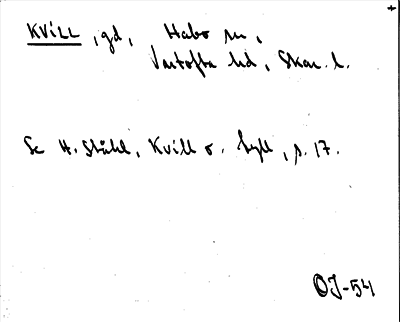 KVILL, gd, Habo sn,
Vartofta hd, Skar. l.
Se H. Ståhl, Kvill o. Fyll, s. 17.
OJ-54